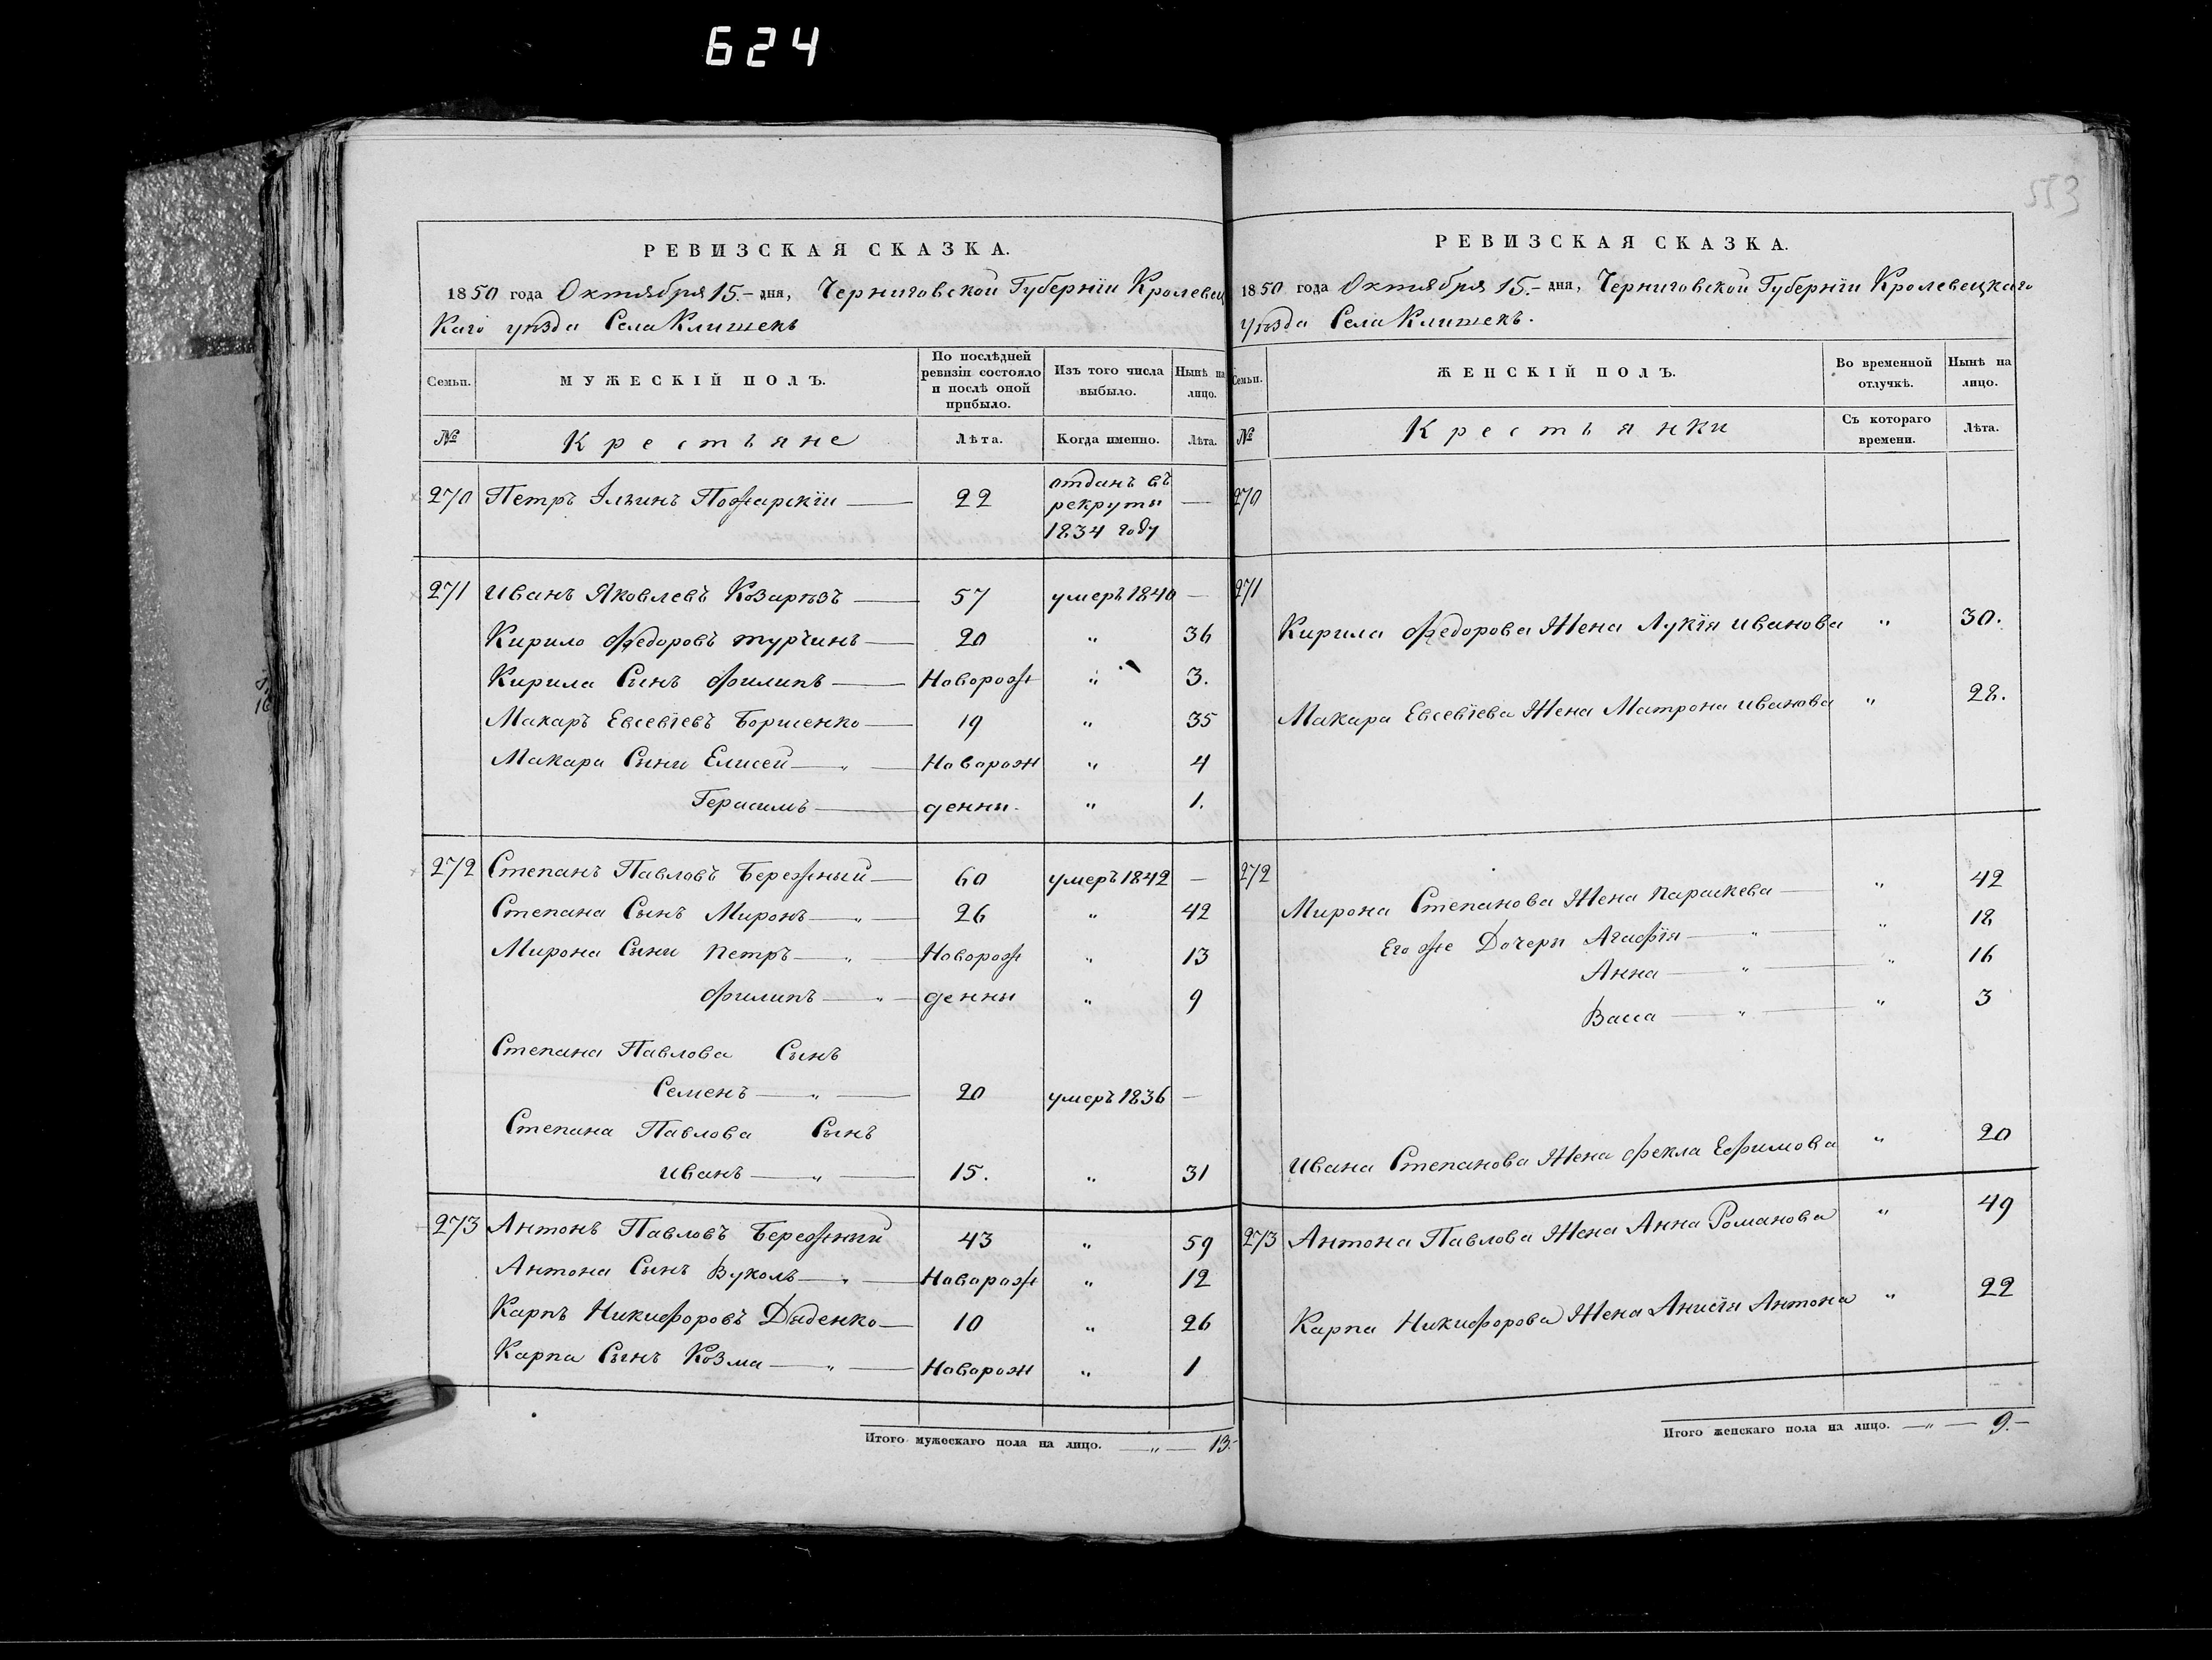 624
553
РЕВИЗСКАЯ СКАЗКА.
1850 года Октября 15.- дня, Черниговской Губерніи Кролевец
каго уѣзда Села Клишекъ
Семьи.
МУЖЕСКІЙ ПОЛЪ.
По послѣдней ревизіи состояло и послѣ оной прибыло.
Изъ того числа выбыло.
Нынѣ на лицо.
№
Крестьяне
Лѣта.
Когда именно.
Лѣта.
270 Петръ Ильинъ Пожарскій — 22 отданъ въ рекруты 1834 году —
271 Иванъ Яковлевъ Козарѣзъ — 57 умеръ 1840 —
Кирило Федоровъ Турчинъ — 20 „ 36
Кирила Сынъ Филипъ — Новорож „ 3.
Макаръ Евсевіевъ Борисенко — 19 „ 35
Макара Сыны Елисей — „ — Новорож „ 4
Герасимъ — денны „ 1.
272 Степанъ Павловъ Бережный — 60 умеръ 1842 —
Степана Сынъ Миронъ — „ — 26 „ 42
Мирона Сыны Петръ — „ — Новорож „ 13
Филипъ — „ — денны „ 9
Степана Павлова Сынъ
Семенъ — „ — 20 умеръ 1836 —
Степана Павлова Сынъ
Иванъ — „ — 15. „ 31
273 Антонъ Павловъ Бережный 43 „ 59
Антона Сынъ Вуколъ — „ — Новорож „ 12
Карпъ Никифоровъ Дяденко — 10 „ 26
Карпа Сынъ Козма — „ — Новорож „ 1
Итого мужескаго пола на лицо. — „ — 13.-
РЕВИЗСКАЯ СКАЗКА.
1850 года Октября 15.- дня, Черниговской Губерніи Кролевецкаго
уѣзда Села Клишекъ.
Семьи.
ЖЕНСКІЙ ПОЛЪ.
Во временной отлучкѣ.
Нынѣ на лицо.
№
Крестьянки
Съ котораго времени.
Лѣта.
270
271
Кирила Федорова Жена Лукія Иванова „ 30.
Макара Евсевіева Жена Матрона Иванова „ 28.
272
Мирона Степанова Жена Параскева — „ 42
Его же Дочери Агафія — „ — „ 18
Анна — „ — „ 16
Васса — „ — „ 3
Ивана Степанова Жена Фекла Ефимова „ 20
273 Антона Павлова Жена Анна Романова „ 49
Карпа Никифорова Жена Анисія Антона „ 22
Итого женскаго пола на лицо. — „ — 9.-